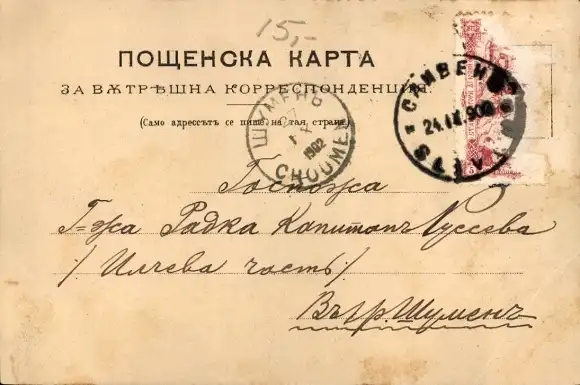 15,-
ПОЩЕНСКА КАРТА
ЗА ВѪТРѢШНА КОРРЕСПОНДЕНЦИЯ.
(Само адрессътъ се пише на тая страна).
ШУМЕНЪ
1902
CHOUMEN
СЛИВЕНЪ
24.IX.902
Госпожа
Г-жа Радка Капитанъ Русева
/Илчева часть/
Въ гр. Шуменъ